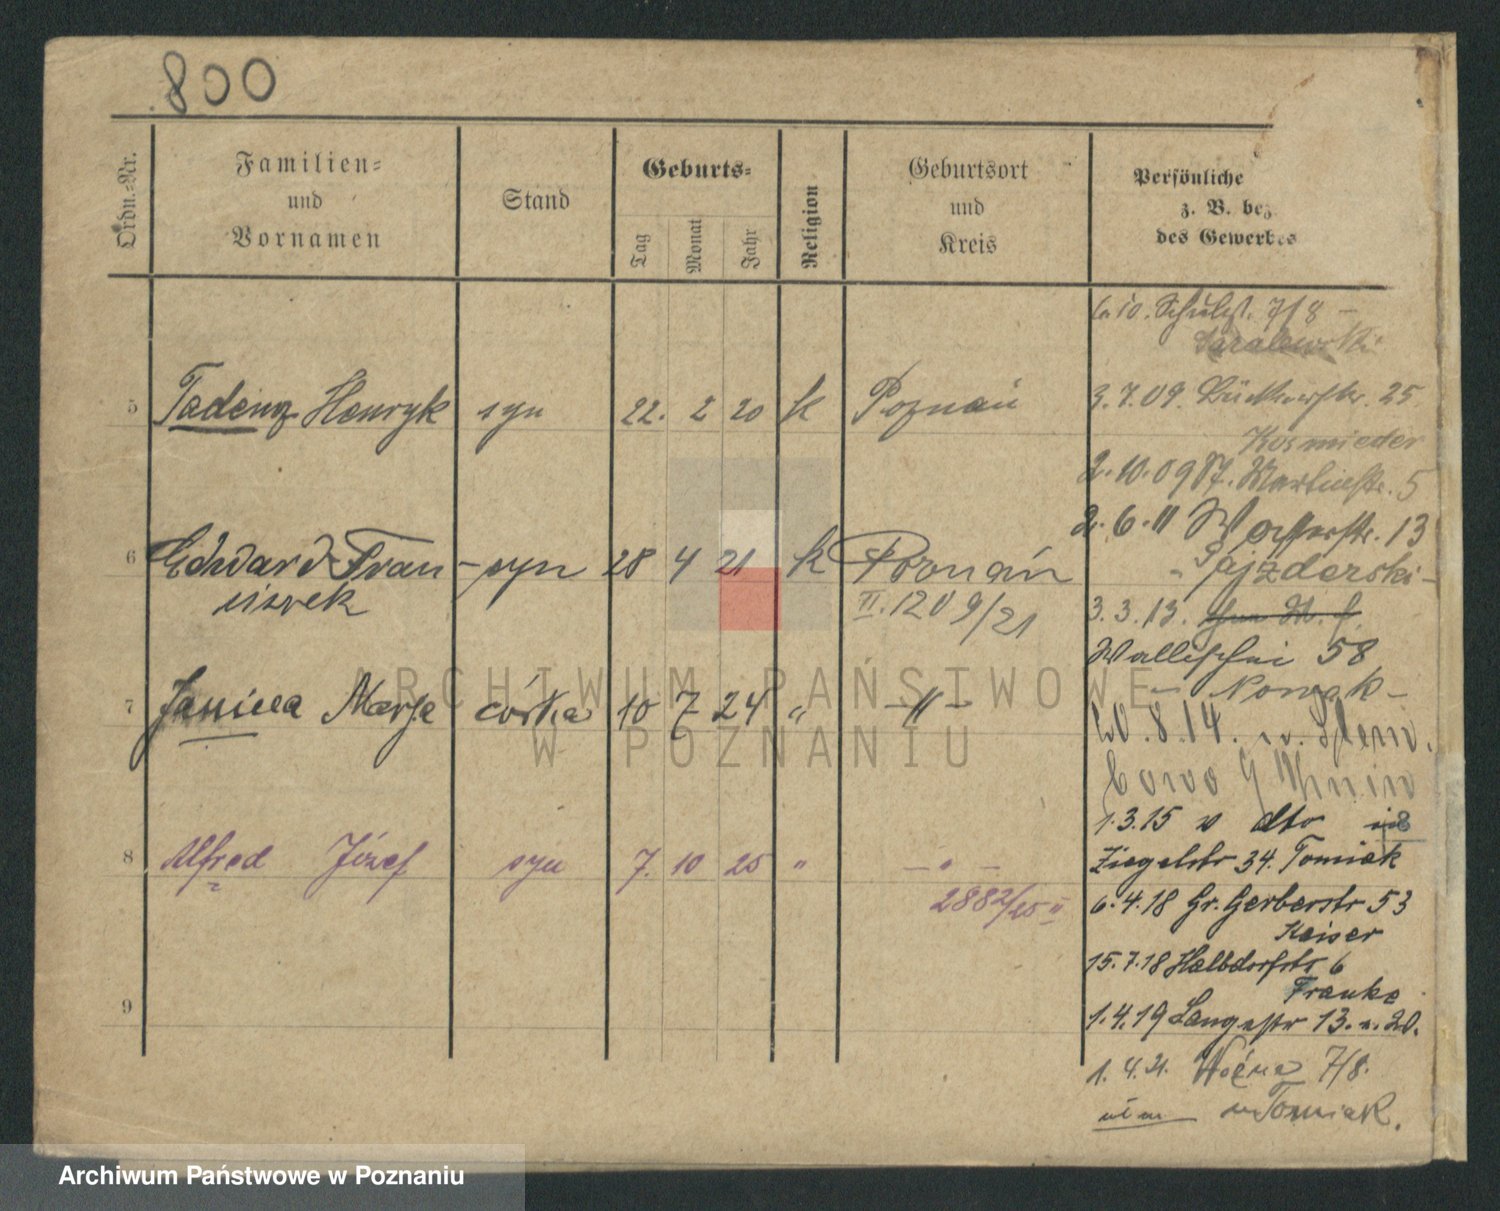 800
Ordn.-Nr.
Familien-
und
Vornamen
Stand
Geburts-
Tag
Monat
Jahr
Religion
Geburtsort
und
Kreis
Persönliche
z. B. bez
des Gewerbes
5 Tadeusz Henryk syn 22. 2 20 k Poznań
6 Edward Fran- syn 28 4 21 k Poznań
ciszek II. 1209/21
7 Janina Marja córka 10 7 24 " -"-
8 Alfred Józef syn 7. 10 25 " -"-
2882/25 II
9
6.10. Schulst. 7/8 -
3.7.09. 25
Kosmieder
2.10.09 St. Martinstr. 5
2.6.11 13
Pajzderski-
3.3.13.
Wallischei 58
- Nowak-
8.14.
1.3.15 v dto
Ziegelstr 34. Tomiak
6.4.18 Gr. Gerberstr 53
Kaiser
15.7.18 Halbdorfstr 6
Franke
1.4.19 Langestr 13. 20.
1.4.21. Woźna 7/8.
Tomiak.
ARCHIWUM PAŃSTWOWE
W POZNANIU
Archiwum Państwowe w Poznaniu